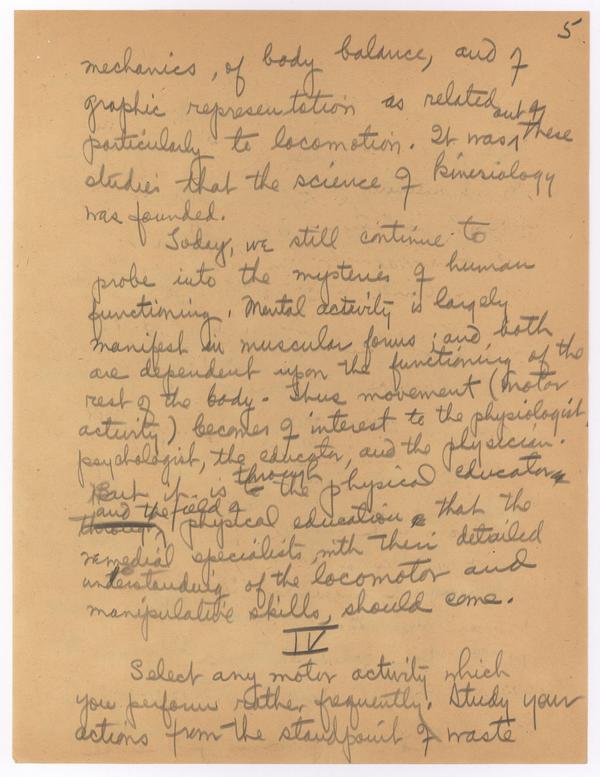 5
mechanics, of body balance, and of
graphic representation as related
particularly to locomotion. It was out of these
studies that the science of Kinesiology
was founded.
Today, we still continue to
probe into the mysteries of human
functioning. Mental activity is largely
manifest in muscular forms; and both
are dependent upon the functioning of the
rest of the body. Thus movement (motor
activity) becomes of interest to the physiologist,
psychologist, the educator, and the physician.
But it is through the physical educator
and the field of
physical education, that the
remedial specialists, with their detailed
understanding of the locomotor and
manipulative skills, should come.
IV
Select any motor activity which
you perform rather frequently. Study your
actions from the standpoint of waste